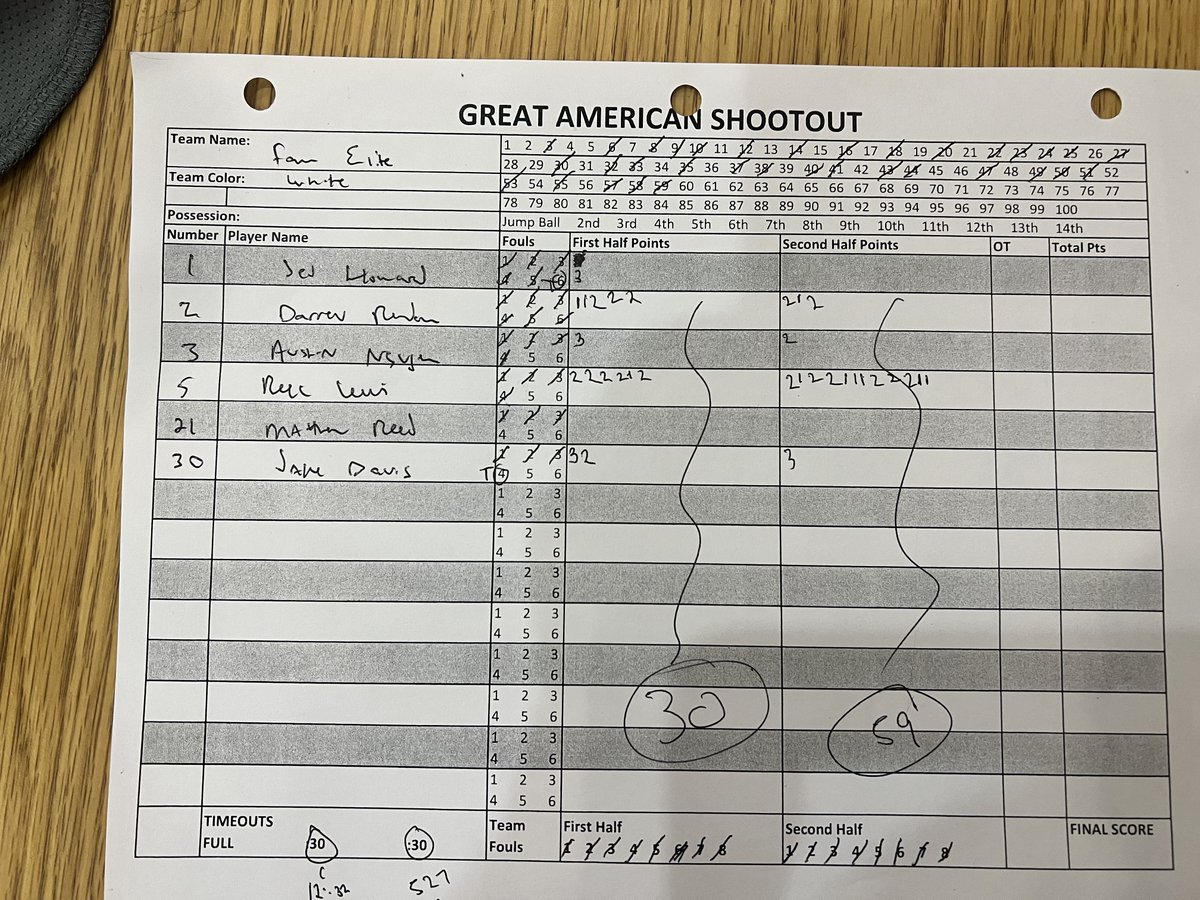 GREAT AMERICAN SHOOTOUT
Team Name: Fam Elite
1 2 3 4 5 6 7 8 9 10 11 12 13 14 15 16 17 18 19 20 21 22 23 24 25 26 27
28 29 30 31 32 33 34 35 36 37 38 39 40 41 42 43 44 45 46 47 48 49 50 51 52
Team Color: White
53 54 55 56 57 58 59 60 61 62 63 64 65 66 67 68 69 70 71 72 73 74 75 76 77
78 79 80 81 82 83 84 85 86 87 88 89 90 91 92 93 94 95 96 97 98 99 100
Possession: Jump Ball 2nd 3rd 4th 5th 6th 7th 8th 9th 10th 11th 12th 13th 14th
Number Player Name Fouls First Half Points Second Half Points OT Total Pts
1 Howard 1 2 3
4 5 6 3
2 Darren 1 2 3 11222 212
4 5 6
3 Austin Nguyen 1 2 3 3 2
4 5 6
5 Lewis 1 2 3 222212 212211122211
4 5 6
21 Matthew Reed 1 2 3
4 5 6
30 Jake Davis 1 2 3 32 3
T 4 5 6
1 2 3
4 5 6
1 2 3
4 5 6
1 2 3
4 5 6
1 2 3
4 5 6
1 2 3
4 5 6
1 2 3
4 5 6
30 59
1 2 3
4 5 6
1 2 3
4 5 6
TIMEOUTS Team First Half Second Half FINAL SCORE
FULL 30 :30 Fouls 1 2 3 4 5 6 7 8 1 2 3 4 5 6 7 8
12:32 527